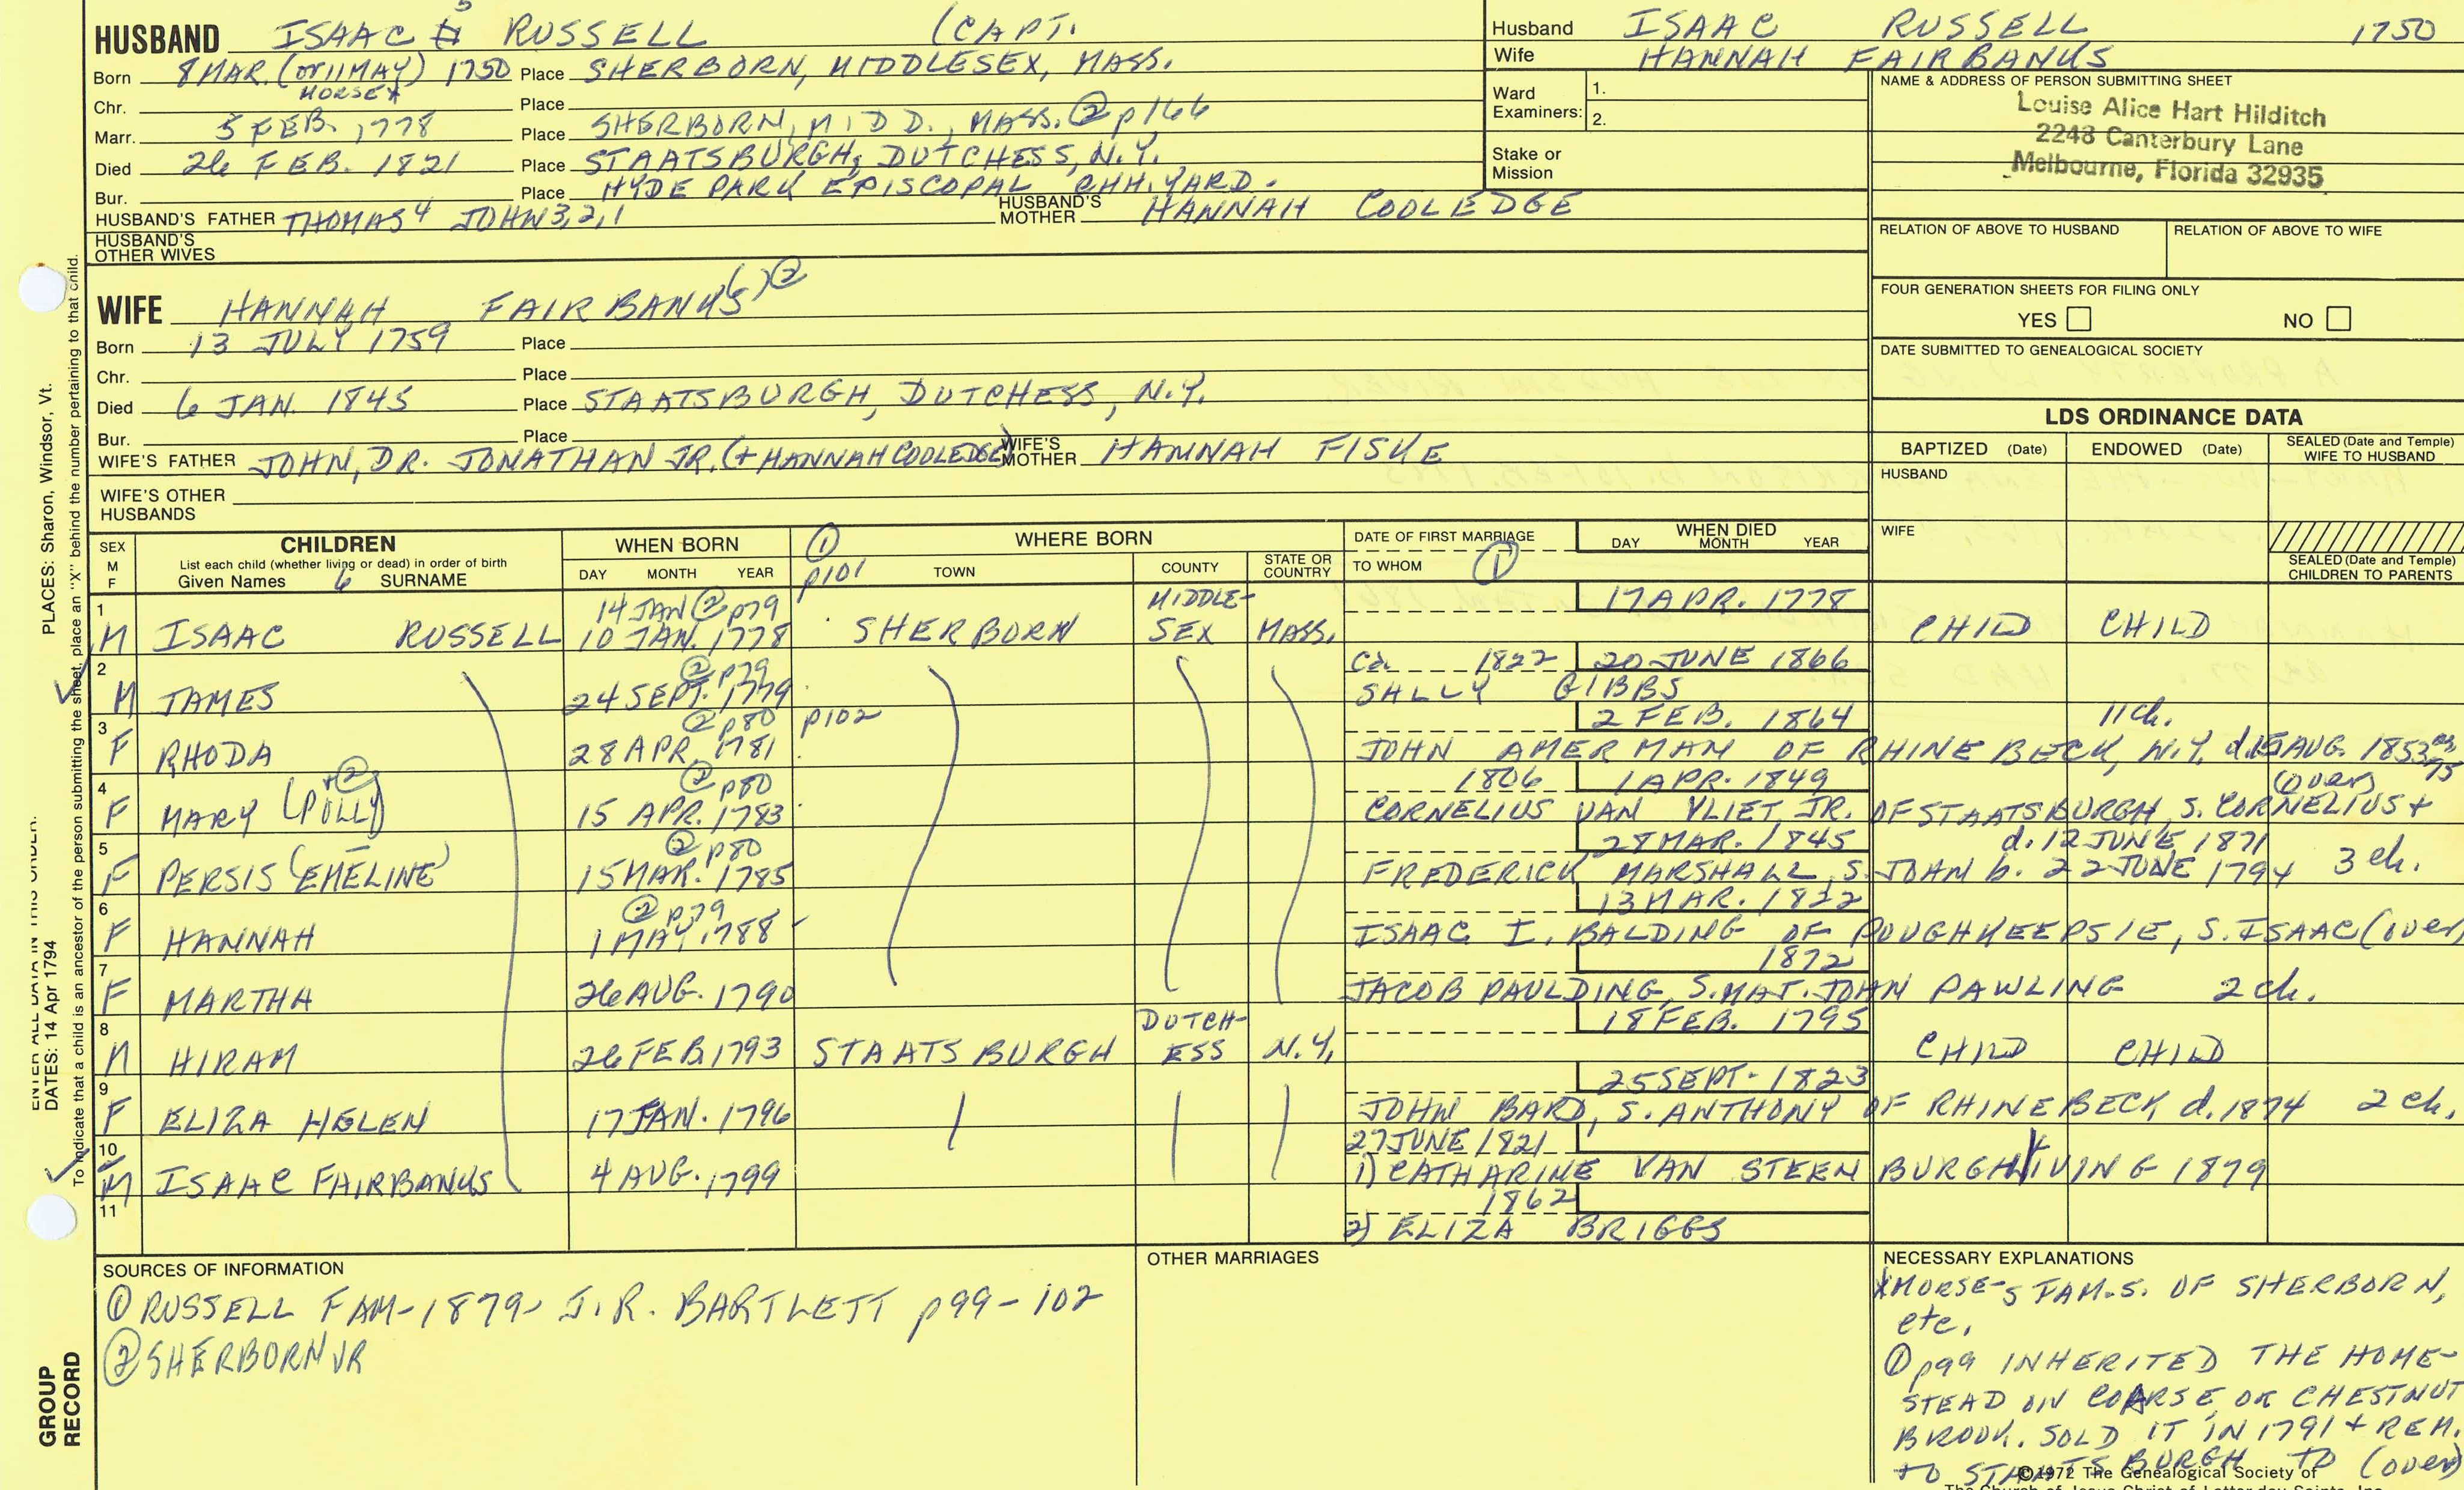 HUSBAND ISAAC 5 RUSSELL (CAPT.
Born 8 MAR. (or 11 MAY) 1750 Place SHERBORN, MIDDLESEX, MASS.
MORSE X
Chr. Place
Marr. 5 FEB. 1778 Place SHERBORN, MIDD., MASS. ② p166
Died 26 FEB. 1821 Place STAATSBURGH, DUTCHESS, N.Y.
Bur. Place HYDE PARK EPISCOPAL CHH. YARD.
HUSBAND'S FATHER THOMAS 4 JOHN 3,2,1 HUSBAND'S MOTHER HANNAH COOLEDGE
HUSBAND'S OTHER WIVES
WIFE HANNAH FAIRBANK(S) ②
Born 13 JULY 1759 Place
Chr. Place
Died 6 JAN. 1845 Place STAATSBURGH, DUTCHESS, N.Y.
Bur. Place
WIFE'S FATHER JOHN, DR. JONATHAN JR. (+ HANNAH COOLEDGE) WIFE'S MOTHER HANNAH FISKE
WIFE'S OTHER HUSBANDS
Husband ISAAC RUSSELL 1750
Wife HANNAH FAIRBANKS
Ward Examiners: 1.
2.
Stake or Mission
NAME & ADDRESS OF PERSON SUBMITTING SHEET
Louise Alice Hart Hilditch
2248 Canterbury Lane
Melbourne, Florida 32935
RELATION OF ABOVE TO HUSBAND RELATION OF ABOVE TO WIFE
FOUR GENERATION SHEETS FOR FILING ONLY
YES NO
DATE SUBMITTED TO GENEALOGICAL SOCIETY
LDS ORDINANCE DATA
BAPTIZED (Date) ENDOWED (Date) SEALED (Date and Temple) WIFE TO HUSBAND
HUSBAND
WIFE
SEALED (Date and Temple) CHILDREN TO PARENTS
SEX M F
CHILDREN
List each child (whether living or dead) in order of birth
Given Names 6 SURNAME
WHEN BORN
DAY MONTH YEAR
① p101
WHERE BORN
TOWN COUNTY STATE OR COUNTRY
DATE OF FIRST MARRIAGE
TO WHOM ①
WHEN DIED
DAY MONTH YEAR
1 14 JAN ② p79 MIDDLE- 17 APR. 1778
M ISAAC RUSSELL 10 JAN. 1778 SHERBORN SEX MASS. CHILD CHILD
2 ② p79 Ca. 1822 20 JUNE 1866
M JAMES 24 SEPT. 1779 SALLY GIBBS
3 ② p80 p102 2 FEB. 1864 11 ch.
F RHODA 28 APR. 1781 JOHN AMERMAN OF RHINEBECK, N.Y. d. 15 AUG. 1853 75
4 + ② ② p80 1806 1 APR. 1849 (over)
F MARY (POLLY) 15 APR. 1783 CORNELIUS VAN VLIET, JR. OF STAATSBURGH, S. CORNELIUS +
5 ② p80 28 MAR. 1845 d. 12 JUNE 1871
F PERSIS (EMELINE) 15 MAR. 1785 FREDERICK MARSHALL, S. JOHN b. 22 JUNE 1794 3 ch.
6 ② p79 13 MAR. 1822
F HANNAH 1 MAY 1788 ISAAC I. BALDING OF POUGHKEEPSIE, S. ISAAC (over)
7 1872
F MARTHA 26 AUG. 1790 JACOB PAULDING, S. MAT. JOHN PAWLING 2 ch.
8 DUTCH- 18 FEB. 1795
M HIRAM 26 FEB. 1793 STAATSBURGH ESS N.Y. CHILD CHILD
9 25 SEPT. 1823
F ELIZA HELEN 17 JAN. 1796 JOHN BARD, S. ANTHONY OF RHINEBECK d. 1874 2 ch.
10 27 JUNE 1821
M ISAAC FAIRBANKS 4 AUG. 1799 1) CATHARINE VAN STEENBURGH LIVING 1879
11 1862
2) ELIZA BRIGGS
SOURCES OF INFORMATION
① RUSSELL FAM - 1879 - J.R. BARTLETT p99-102
② SHERBORN VR
OTHER MARRIAGES
NECESSARY EXPLANATIONS
X MORSE - S FAM.S. OF SHERBORN,
etc.
① p99 INHERITED THE HOME-
STEAD ON COARSE OR CHESTNUT
BROOK. SOLD IT IN 1791 + REM.
TO STAATSBURGH TO (over)
©1972 The Genealogical Society of
The Church of Jesus Christ of Latter-day Saints, Inc.
PLACES: Sharon, Windsor, Vt.
To indicate that a child is an ancestor of the person submitting the sheet, place an "X" behind the number pertaining to that child.
ENTER ALL DATA IN THIS ORDER:
DATES: 14 Apr 1794
GROUP RECORD